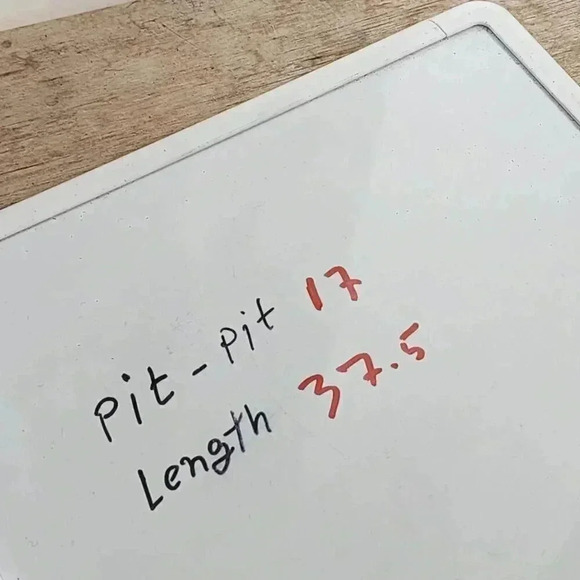 Pit - Pit 17
Length 37.5